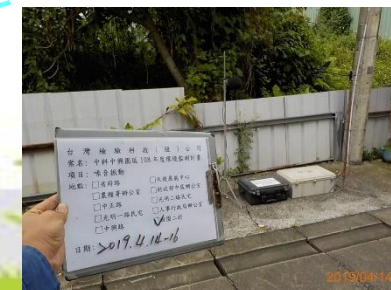 台灣檢驗科技(股)公司
案名：中科中興園區108年度環境監測計畫
項目：噪音振動
地點：□省府路 □災後展示中心
□農糧署辦公室 □財政部中區辦公室
□中正路 □光明二路民宅
□光明一路民宅 □人事行政局辦公室
□中興路
日期：2019.4.14-16
2019/04/14